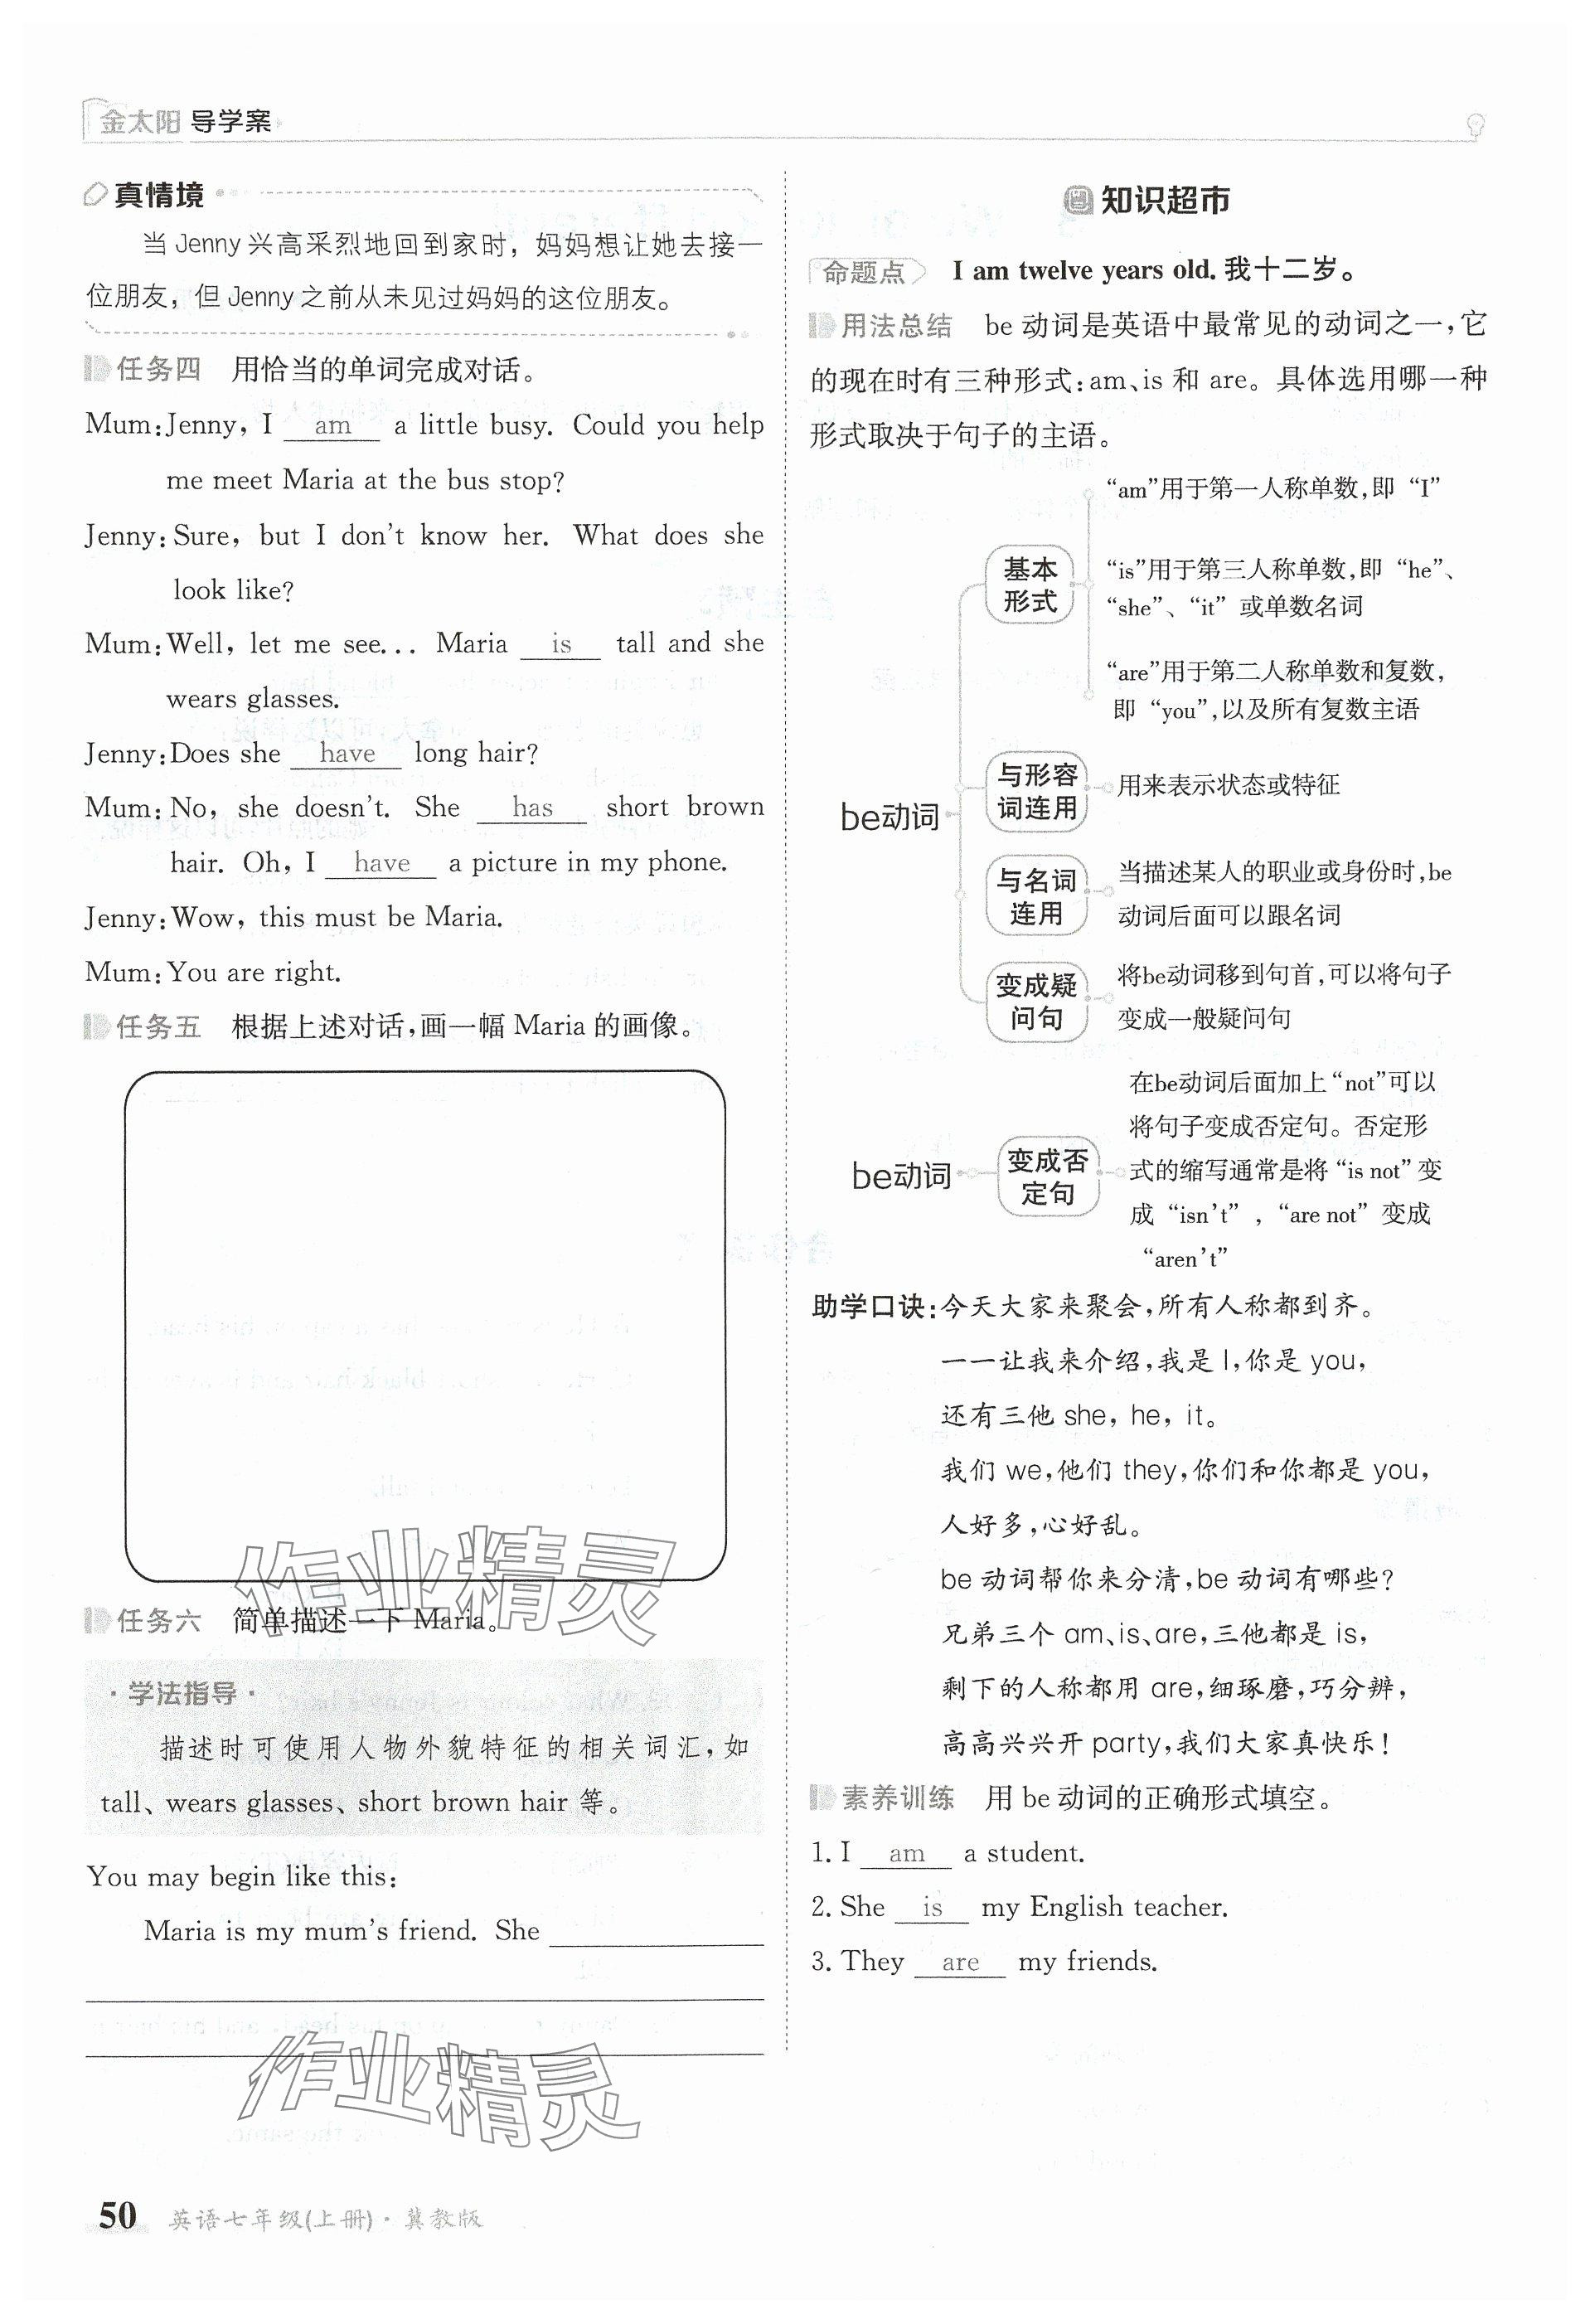 金太阳 导学案
真情境
当 Jenny 兴高采烈地回到家时，妈妈想让她去接一
位朋友，但 Jenny 之前从未见过妈妈的这位朋友。
任务四 用恰当的单词完成对话。
Mum: Jenny, I am a little busy. Could you help
me meet Maria at the bus stop?
Jenny: Sure, but I don't know her. What does she
look like?
Mum: Well, let me see... Maria is tall and she
wears glasses.
Jenny: Does she have long hair?
Mum: No, she doesn't. She has short brown
hair. Oh, I have a picture in my phone.
Jenny: Wow, this must be Maria.
Mum: You are right.
任务五 根据上述对话，画一幅 Maria 的画像。
任务六 简单描述一下 Maria。
·学法指导·
描述时可使用人物外貌特征的相关词汇，如
tall、wears glasses、short brown hair 等。
You may begin like this:
Maria is my mum's friend. She
50 英语七年级(上册)·冀教版
知识超市
命题点 I am twelve years old. 我十二岁。
用法总结 be 动词是英语中最常见的动词之一，它
的现在时有三种形式：am、is 和 are。具体选用哪一种
形式取决于句子的主语。
be动词
基本
形式
“am”用于第一人称单数，即“I”
“is”用于第三人称单数，即“he”、
“she”、“it”或单数名词
“are”用于第二人称单数和复数，
即“you”，以及所有复数主语
与形容
词连用
用来表示状态或特征
与名词
连用
当描述某人的职业或身份时，be
动词后面可以跟名词
变成疑
问句
将be动词移到句首，可以将句子
变成一般疑问句
be动词
变成否
定句
在be动词后面加上“not”可以
将句子变成否定句。否定形
式的缩写通常是将“is not”变
成“isn't”，“are not”变成
“aren't”
助学口诀：今天大家来聚会，所有人称都到齐。
一一让我来介绍，我是 I，你是 you，
还有三他 she，he，it。
我们 we，他们 they，你们和你都是 you，
人好多，心好乱。
be 动词帮你来分清，be 动词有哪些？
兄弟三个 am、is、are，三他都是 is，
剩下的人称都用 are，细琢磨，巧分辨，
高高兴兴开 party，我们大家真快乐！
素养训练 用 be 动词的正确形式填空。
1. I am a student.
2. She is my English teacher.
3. They are my friends.
作业精灵
作业精灵